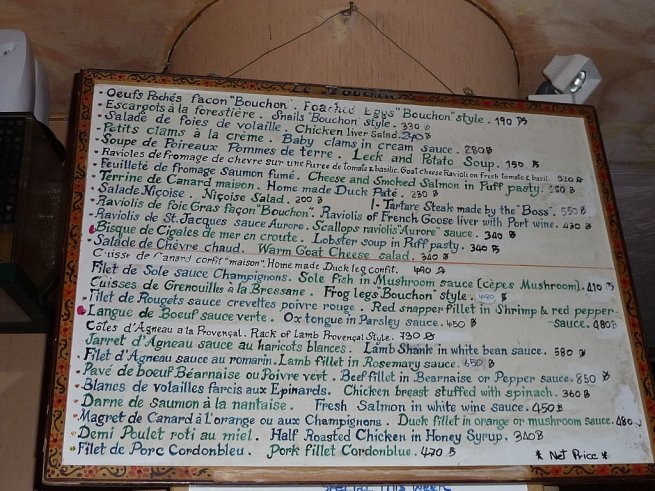 Le Bouchon
• Oeufs Pochés facon "Bouchon". Poached Eggs "Bouchon" style. 190 ฿
• Escargots à la forestière. Snails "Bouchon" style. 330 ฿
• Salade de foies de volaille. Chicken liver Salad. 340 ฿
• Petits clams à la crème. Baby clams in cream sauce. 280 ฿
• Soupe de Poireaux Pommes de terre. Leek and Potato Soup. 150 ฿
• Ravioles de fromage de chevre sur une Puree de tomate & basilic. Goat cheese Ravioli on fresh tomato & basil. 320 ฿
• Feuilleté de fromage Saumon fumé. Cheese and Smoked Salmon in Puff pasty. 280 ฿
• Terrine de Canard maison. Home made Duck Paté. 230 ฿
• Salade Niçoise. Niçoise Salad. 200 ฿ 1- Tartare Steak made by the "Boss". 550 ฿
• Raviolis de foie Gras façon "Bouchon". Raviolis of French Goose liver with Port wine. 430 ฿
• Raviolis de St. Jacques sauce Aurore. Scallops raviolis "Aurore" sauce. 340 ฿
• Bisque de Cigales de mer en croute. Lobster soup in Puff pasty. 340 ฿
• Salade de Chèvre chaud. Warm Goat Cheese salad. 340 ฿
Cuisse de Canard confit "maison". Home made Duck leg confit. 490 ฿
• Filet de Sole sauce Champignons. Sole fish in Mushroom sauce (cèpes Mushroom). 410 ฿
• Cuisses de Grenouilles à la Bressane. Frog legs "Bouchon" style. 490 ฿
• Filet de Rougets sauce crevettes poivre rouge. Red snapper fillet in Shrimp & red pepper-
• Langue de Boeuf sauce verte. Ox tongue in Parsley sauce. 450 ฿ -sauce. 480฿
Côtes d'Agneau a la Provençal. Rack of Lamb Provençal Style. 730 ฿
• Jarret d'Agneau sauce au haricots blancs. Lamb Shank in white bean sauce. 580 ฿
• Filet d'Agneau sauce au romarin. Lamb fillet in Rosemary sauce. 650 ฿
• Pavé de boeuf Béarnaise ou Poivre vert. Beef fillet in Bearnaise or Pepper sauce. 850 ฿
• Blancs de volailles farcis aux Epinards. Chicken breast stuffed with spinach. 360 ฿
• Darne de Saumon à la nantaise. Fresh Salmon in white wine sauce. 450 ฿
• Magret de Canard à L'orange ou aux Champignons. Duck fillet in orange or mushroom sauce. 480
• Demi Poulet roti au miel. Half Roasted Chicken in Honey Syrup. 340 ฿
• Filet de Porc Cordonbleu. Pork fillet Cordonblue. 470 ฿ * Net Price *
Special This Week